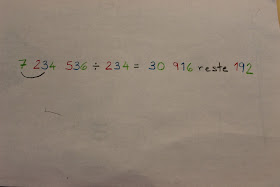 7 234 536 ÷ 234 = 30 916 reste 192